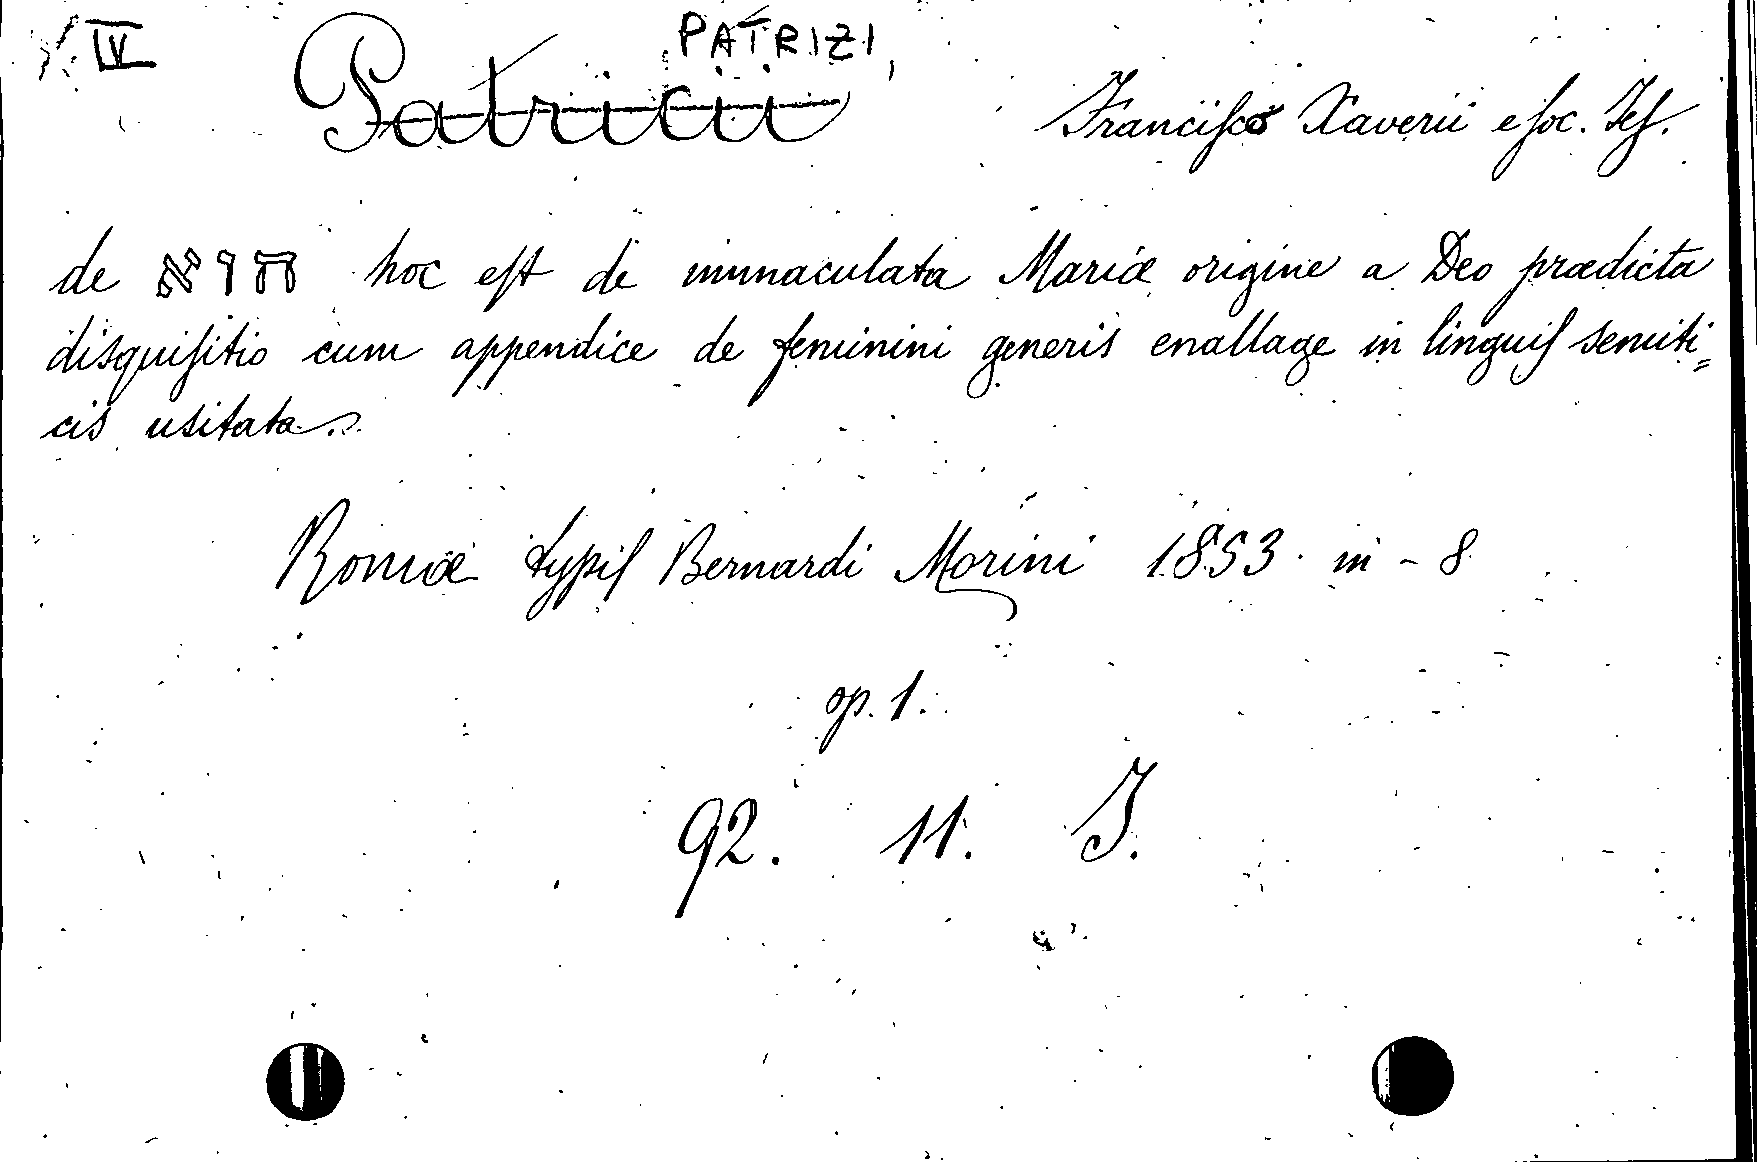 IV
PATRIZI,
Patricii Francisco Xaverii e soc. Jes.
de אוה hoc est de immaculata Mariæ origine a Deo prædicta
disquisitio cum appendice de feminini generis enallage in linguis semiti=
cis usitata.
Romæ typis Bernardi Morini 1853. in - 8
op. 1.
92. 11. J.